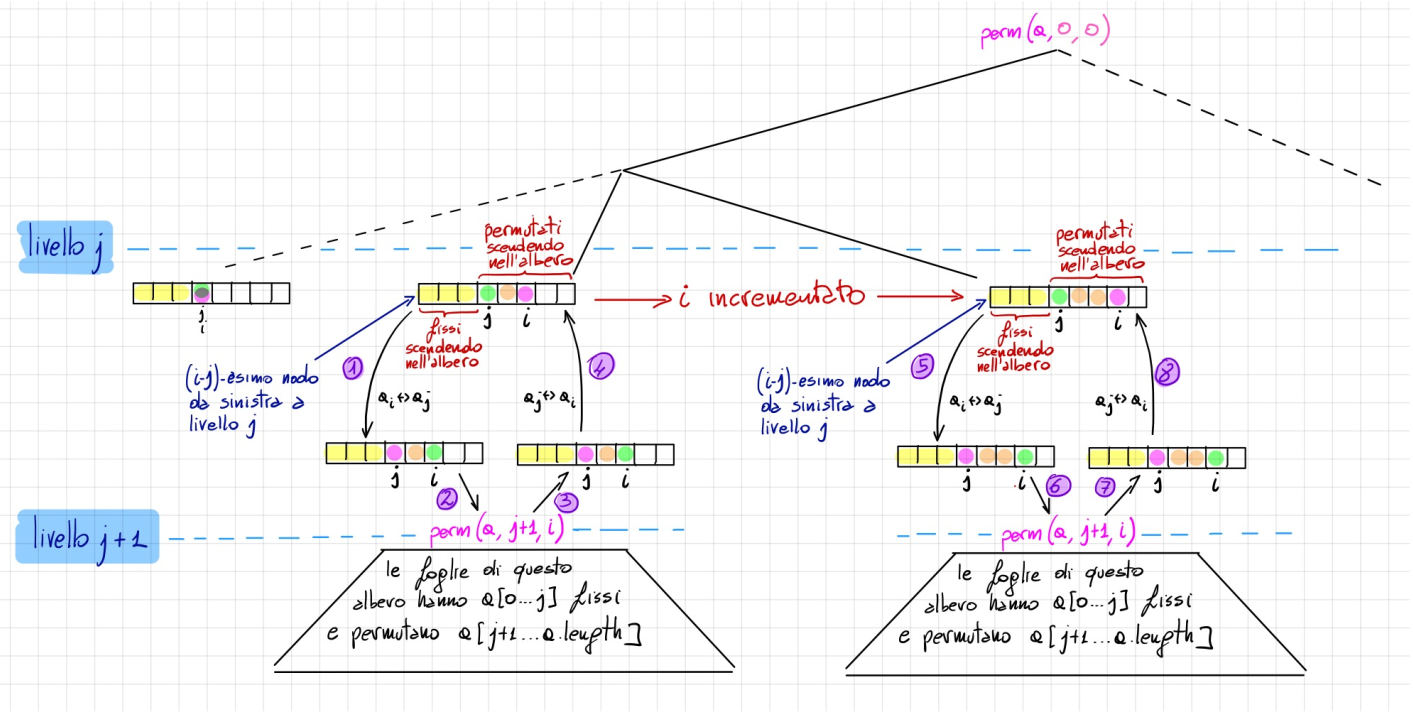 perm(a, 0, 0)
livello j
permutati
scendendo
nell'albero
permutati
scendendo
nell'albero
j
i
j
i
i incrementato
j
i
fissi
scendendo
nell'albero
fissi
scendendo
nell'albero
(i-j)-esimo nodo
da sinistra a
livello j
1
ai↔aj
aj↔ai
4
(i-j)-esimo nodo
da sinistra a
livello j
5
ai↔aj
aj↔ai
8
j
i
j
i
j
i
j
i
2
3
6
7
livello j+1
perm(a, j+1, i)
perm(a, j+1, i)
le foglie di questo
albero hanno a[0...j] fissi
e permutano a[j+1...a.length]
le foglie di questo
albero hanno a[0...j] fissi
e permutano a[j+1...a.length]